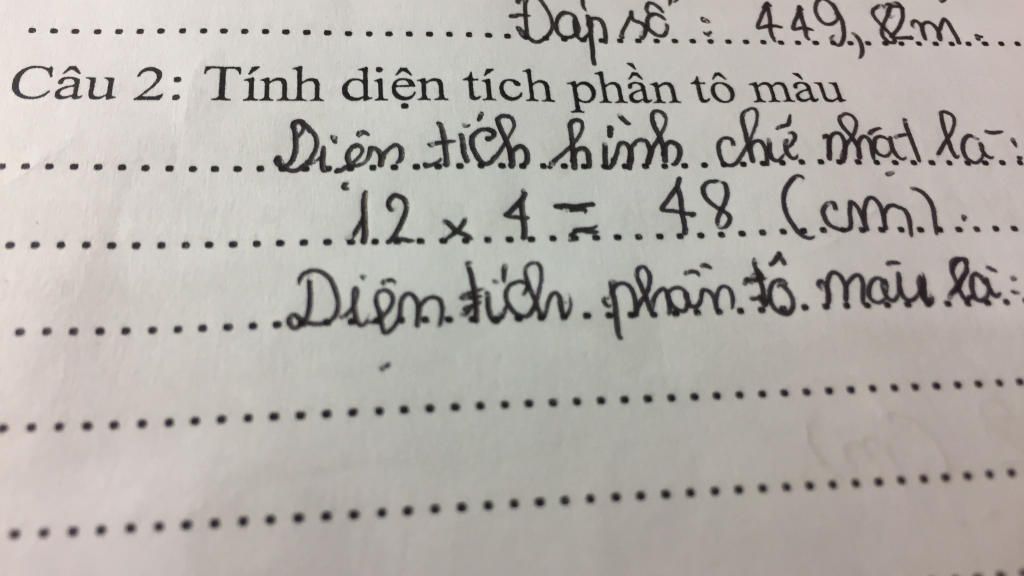 Đáp số : 449,82m.
Câu 2: Tính diện tích phần tô màu
Diện tích hình chữ nhật là:
12 x 4 = 48 (cm)
Diện tích phần tô màu là: